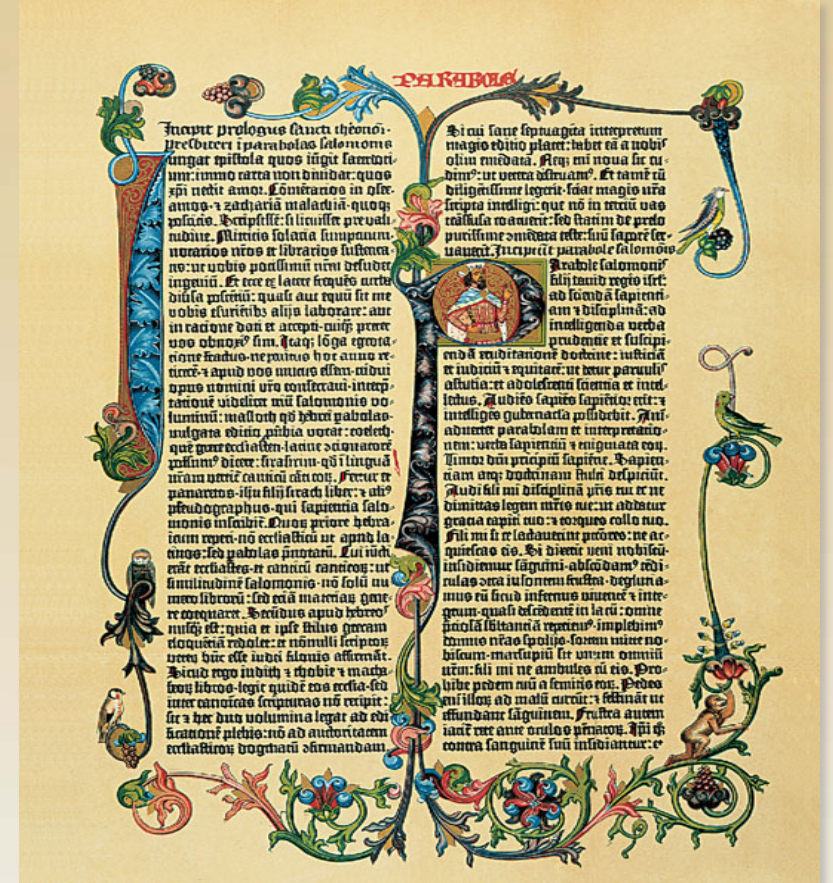 PARABOLE
Incipit prologus sancti iheronimi
presbiteri i parabolas salomonis
ungat epistola quos iũgit sacerdoti-
um: immo carta non dividat: quos
xp̄i nectit amor. Cõmētarios in osee.
amos. ⁊ zachariā malachiā· quoq̄
poscitis. Scripsissē: si licuisset pre vali-
tudine. Mittitis solacia sumptuum.
notarios nr̄os et librarios sustenta-
tis: ut vobis potissimū nr̄m desudet
ingeniū. Et ecce ex latere frequēs turba
diūsa poscētiū: quasi aut equū sit me
vobis esuriētibꝫ alijs laborare: aut
in racione dati et accepti· cuiq̄ꝫ preter
vos obnoxiꝰ sim. Itaqꝫ lōga egrota-
tione fractus· ne penitus hoc anno re-
ticerē· ⁊ apud vos mutus essem· tridui
opus nomini vr̄o consecravi· interp̄-
tationē videlicet triū salomonis vo-
luminū: masloth qd̄ hebrei pabolas·
vulgata editio p̄ūbia vocat: coeleth·
quē grece ecclīasten· latine ɔcionatorē
possumꝰ dicere: sirasirim· qd̄ ī linguā
nr̄am vertit̄ canticū cāticoꝝ. Fertur et
panaretos· ihū filij sirach liber: ⁊ aliꝰ
pseudographus· qui sapientia salo-
monis inscribit̄. Quoꝝ priorē hebra-
icum repperi· nō ecclīasticū ut apud la-
tinos: sed pabolas p̄notatū. Cui iūcti
erāt ecclīastes· et canticū canticoꝝ: ut
similitudinē salomonis· nō solū nu-
mero librorū: sed etiā materiaꝝ gene-
re coequaret. Secūdus apud hebreos
nusq̄ꝫ est: quia et ipse stilus grecam
eloquētiā redolet: et nōnulli scriptoꝝ
veteꝝ hūc esse iudei filonis affirmāt.
Sicud ergo iudith ⁊ thobie ⁊ macha-
beoꝝ libros· legit quidē eos ecclīa· sed
inter canonicas scripturas nō recipit:
sic ⁊ hec duo volumina legat ad edi-
ficationē plebis: nō ad auctoritatem
ecclīasticoꝝ dogmatū ɔfirmandam.
Si cui sane septuagīta interpretum
magis editio placet: habet eā a nobis
olim emēdatā. Neqꝫ eni nova sic cu-
dimꝰ: ut vetera destruamꝰ. Et tamē cū
diligētissime legerit· sciat magis nr̄a
scripta intelligi: que nō in terciū vas
trāsfusa coacuerit: sed statim de prelo
purissime ɔmēdata teste: suū saporē ser-
vaverit. Incipiūt parabole salomonis
Parabole salomonis
filij david regis isrl̄:
ad sciendā sapienti-
am ⁊ disciplinā: ad
intelligenda verba
prudentie et suscipi-
endā eruditationē doctrine: iusticiā
et iudiciū ⁊ equitatē: ut detur parvulis
astutia: et adolescenti scientia et intel-
lectus. Audiēs sapiēs sapiētior erit: ⁊
intelligēs gubernacla possidebit. Ani-
advertet parabolam et interpretatio-
nem: verba sapientiū ⁊ enigmata eoꝝ.
Timor dn̄i principiū sapiētie. Sapien-
tiam atqꝫ doctrinam stulti despiciūt.
Audi fili mi disciplinā pr̄is tui et ne
dimittas legem mr̄is tue: ut addatur
gracia capiti tuo: ⁊ torques collo tuo.
Fili mi si te lactaverint pctōres: ne ac-
quiescas eis. Si dixerīt veni nobiscū·
insidiemur sāguini· abscōdamꝰ tēdi-
culas ɔtra insontem frustra· deglutia-
mus eū sicud infernus viventē ⁊ inte-
grum· quasi descēdentē in lacū: omnē
p̄ciosā sb̄stanciā reperiemꝰ· implebimꝰ
domus nr̄as spolijs· sortem mitte no-
biscum· marsupiū sit unum omniū
nr̄m: fili mi ne ambules cū eis. Pro-
hibe pedem tuū a semitis eoꝝ. Pedes
eni illoꝝ ad malū currūt: ⁊ festināt ut
effundant sāguinem. Frustra autem
iacit̄ rete ante oculos pēnatoꝝ. Ipi q̄ꝫ
contra sanguinē suū insidiantur: et